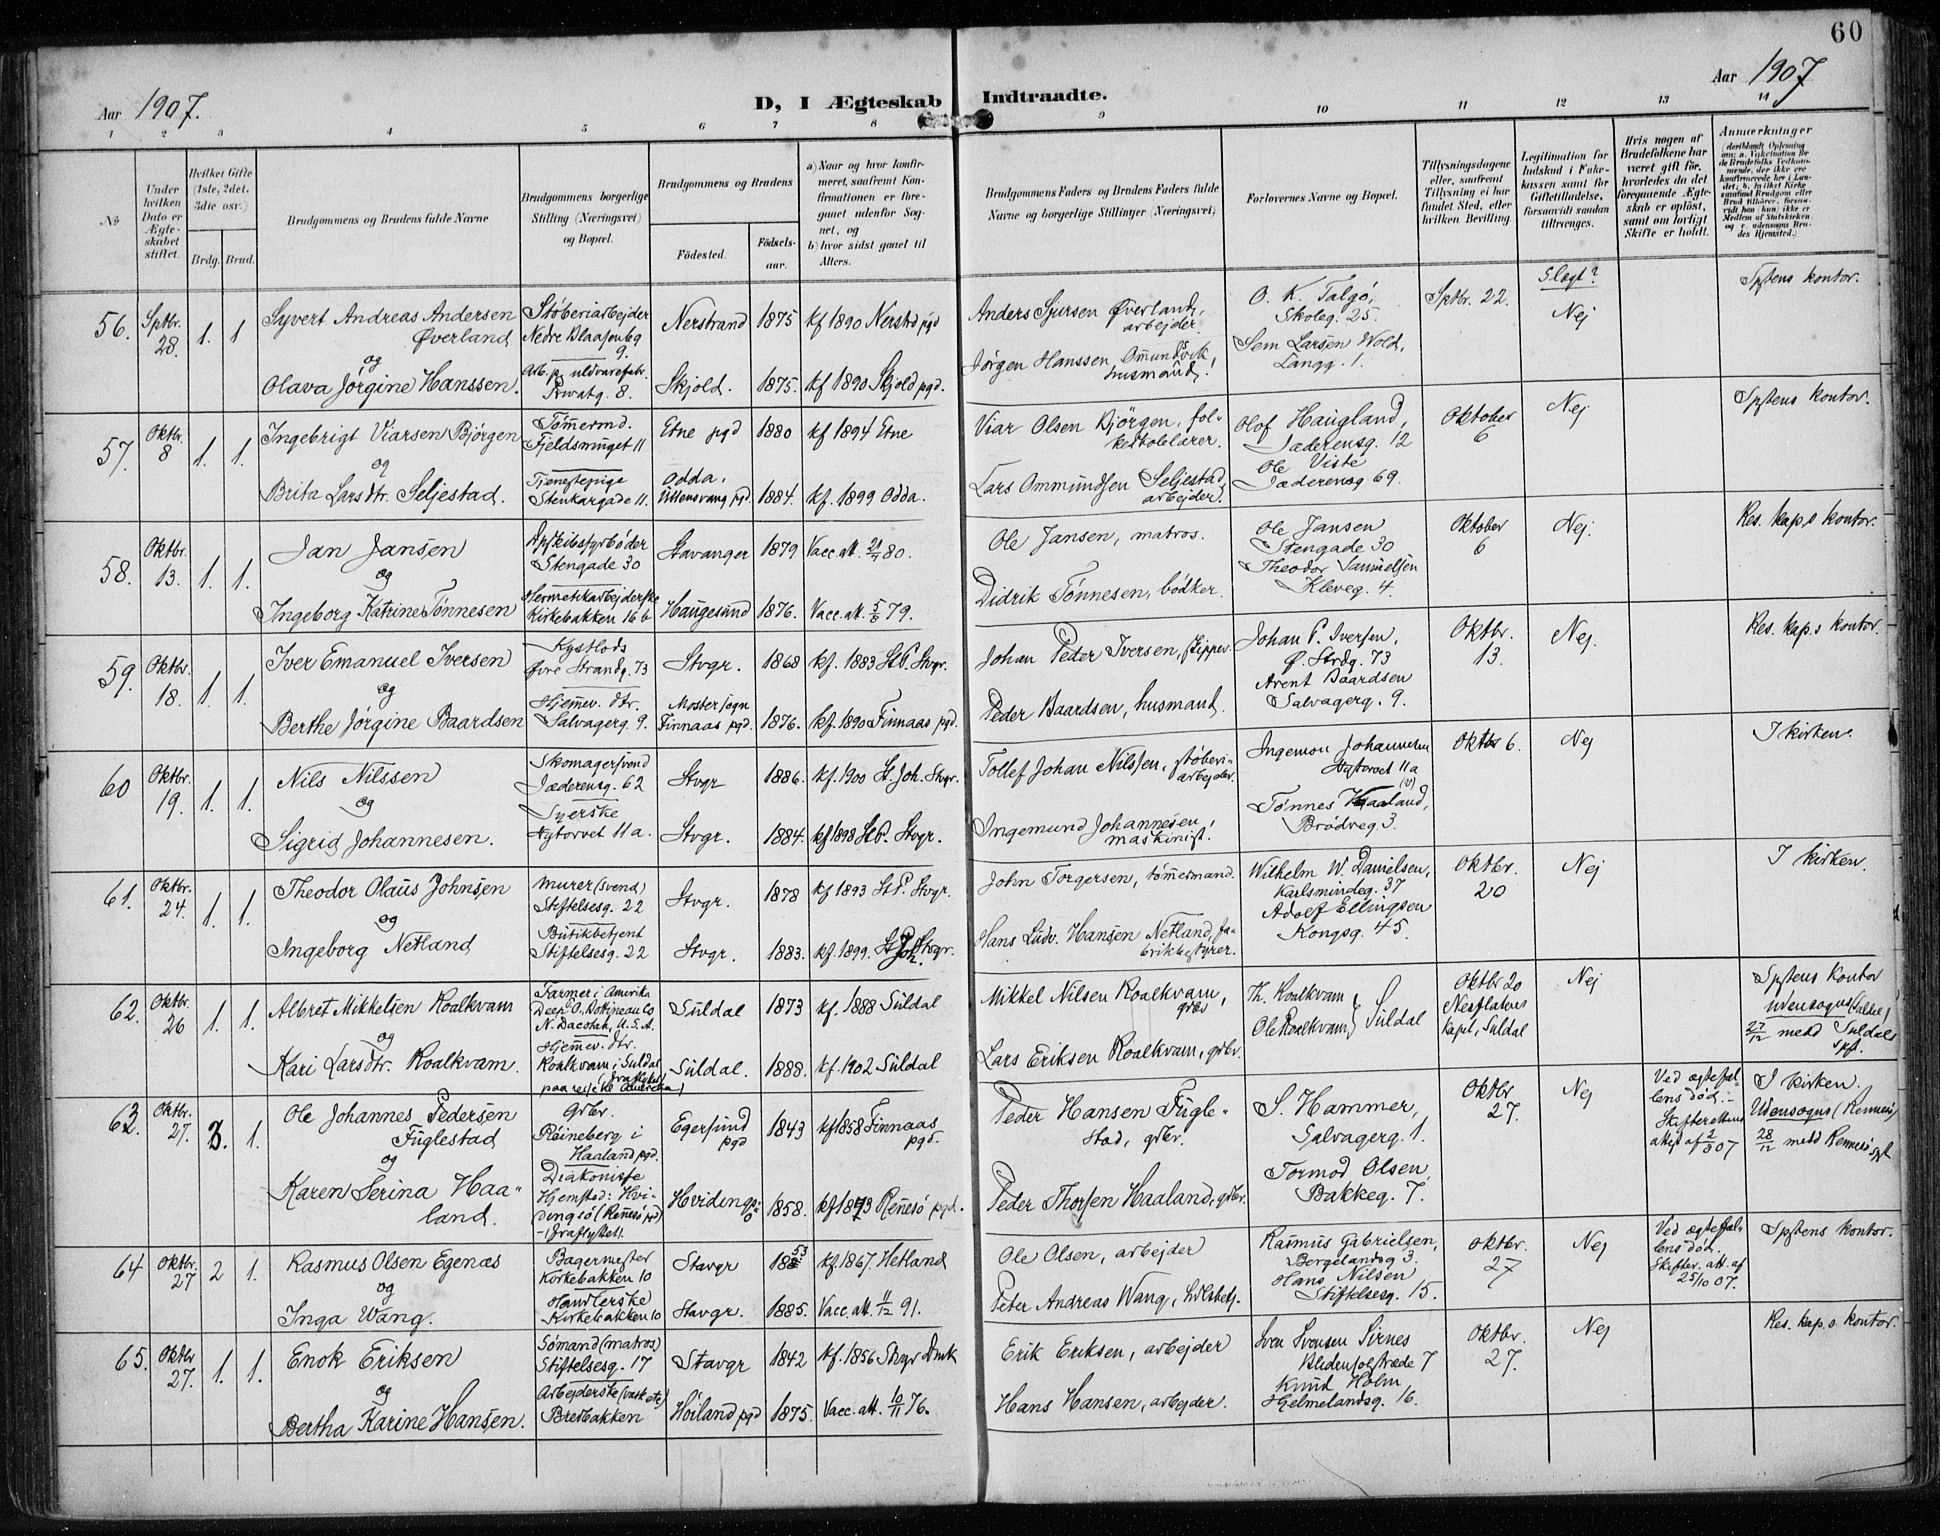 60
Aar 1907.
D, I Ægteskab Indtraadte.
Aar 1907
1 2 3 4 5 6 7 8 9 10 11 12 13 14
№
Under hvilken Dato er Ægteskabet stiftet.
Hvilket Gifte (1ste, 2det, 3dte osv.)
Brdg. Brud.
Brudgommens og Brudens fulde Navne
Brudgommens borgerlige Stilling (Næringsvei) og Bopæl.
Brudgommens og Brudens
Födested.
Födsels-aar.
a) Naar og hvor konfirmeret, saafremt Konfirmationen er foregaaet udenfor Sognet, og
b) hvor sidst gaaet til Alters.
Brudgommens Faders og Brudens Faders fulde Navne og borgerlige Stillinger (Næringsvei)
Forlovernes Navne og Bopæl.
Tillysningsdagene eller, saafremt Tillysning ei har fundet Sted, efter hvilken Bevilling.
Legitimation for Indskud i Enkekassen samt for Giftetilladelse, forsaavidt saadan tiltrænges.
Hvis nogen af Brudefolkene har været gift för, hvorledes da det foregaaende Ægteskab er oplöst, samt om lovligt Skifte er holdt.
Anmærkninger
56. Sptbr. 28. 1. 1
Syvert Andreas Andersen Øverland
og
Olava Jørgine Hanssen.
Støberiarbejder
Nedre Blaasenbg 9.
Arb. p. uldvarefabr.
Privatg. 8.
Nerstrand 1875 kf 1890 Nerstd pgd
Skjold. 1875. kf 1890 Skjold pgd.
Anders Sjursen Øverland, arbejder
Jørgen Hanssen Omundsvik, husmand.
O. K. Talgø, Skoleg. 25.
Sem Larsen Wold, Langg. 1.
Sptbr. 22.
Slægt?
Nej
Spstens kontor.
57. Oktbr. 8 1. 1.
Ingebrigt Viarsen Bjørgen
og
Brita Larsdtr. Seljestad.
Tømermd.
Fjeldsmuget 11
Tjenestepige
Stenkargade 11.
Etne pgd 1880 kf 1894 Etne
Odda, Ullensvang pgd. 1884. kf. 1899 Odda.
Viar Olsen Bjørgen, folkeskolelærer.
Lars Ommundsen Seljestad, arbejder.
Olof Haugland, Jæderensg. 12
Ole Viste Jæderensg 69.
Oktober 6
Nej
Spstens kontor.
58. Oktbr. 13. 1. 1.
Jan Jansen
og
Ingeborg Katrine Tønnesen
Dpskibsfyrbøder
Stengade 30
Hermetikarbejderske
Kirkebakken 16 b
Stavanger 1879 Vacc. att. 80.
Haugesund 1876. Vacc. att. 79.
Ole Jansen, matros.
Didrik Tønnesen, bødker.
Ole Jansen Stengade 30
Theodor Samuelsen Kleveg. 4.
Oktober 6
Nej.
Res. kap.s kontor.
59. Oktbr. 18. 1. 1.
Iver Emanuel Iversen
og
Berthe Jørgine Baardsen
Kystlods
Øvre Strandg. 73
Hjemev. dtr.
Salvagerg. 9.
Stvgr. 1868 kf. 1883 St P. Stvgr.
Mostersogn Finnaas pgd. 1876. kf. 1890 Finnaas pgd.
Johan Peder Iversen, skipper.
Peder Baardsen, husmand.
Johan P. Iversen, Ø. Strdg. 73
Arent Baardsen Salvagerg. 9.
Oktbr. 13.
Nej.
Res. kap.s kontor.
60 Oktbr. 19. 1. 1.
Nils Nilssen
og
Sigrid Johannesen.
Skomagersvend
Jæderensg. 62
Syerske
Nytorvet 11 a.
Stvgr 1886. kf. 1900 St. Joh. Stvgr.
Stvgr. 1884. kf 1898 St P. Stvgr.
Tollef Johan Nilssen, støberiarbejder.
Ingemund Johannesen, maskinist.
Ingemon Johannesen Nytorvet 11 a
Tønnes Haaland, Brødveg. 3.
Oktbr 6.
Nej
I kirken.
61. Oktbr. 24. 1. 1.
Theodor Olaus Johnsen
og
Ingeborg Netland
Murer (svend)
Stiftelsesg. 22
Butikbetjent
Stiftelsesg. 22
Stvgr. 1878 kf 1893 St P. Stvgr.
Stvgr. 1883. kf. 1899. St Joh. Stvgr.
John Torgersen, tømermand.
Hans Ludv. Hansen Netland, fabrikbestyrer.
Wilhelm W. Danielsen, Karlsmindeg. 37
Adolf Ellingsen Kongsg. 45.
Oktbr. 20
Nej
I kirken.
62. Oktbr. 26 1. 1.
Albret Mikkelsen Roalkvam
og
Kari Larsdtr. Roalkvam.
Farmer i Amerika
Deep P. O. Bottineau Co
N. Dacotah, U. S. A.
Hjemev. dtr.
Roalkvam i Suldal
(fraflyttet)
paa rejse til Amerika
Suldal 1873 kf. 1888 Suldal
Suldal. 1888. kf. 1902 Suldal
Mikkel Nilsen Roalkvam, grbr
Lars Eriksen Roalkvam, grbr.
Th. Roalkvam
Ole Roalkvam } Suldal
Oktbr 20 Nesflatens kapel, Suldal
Nej
Spstens kontor
Udensogns (Suldal)
27/12 meld Suldals Spst.
63. Oktbr. 27. 2. 1.
Ole Johannes Pedersen Fuglestad
og
Karen Serina Haaland.
Grbr.
Reineberg i Haaland pgd.
Diakonisse
Hjemsted: Hvidingsø (Rennesø pgd)
(fraflyttet).
Egersund pgd 1843 kf 1858 Finnaas pgd.
Hvidingsø 1858. kf 1873 Rennesø pgd.
Peder Hansen Fuglestad, grbr.
Peder Thorsen Haaland, grbr.
S. Hammer, Salvagerg. 1.
Tormod Olsen, Bakkeg. 7.
Oktbr 27.
Nej
Ved ægtefællens død. –
Skifteretens attest af 2/8 07
I kirken.
Udensogns (Rennesø)
28/12 meld Rennesø spst
64 Oktbr. 27 2 1.
Rasmus Olsen Egenæs
og
Inga Wang.
Bagermester
Kirkebakken 10
Handlerske
Kirkebakken 10
Stavgr 1853 kf. 1867. Hetland
Stavgr. 1885. Vacc. att. 11/12 91.
Ole Olsen, arbejder
Peter Andreas Wang, hdlsbetj.
Rasmus Gabrielsen, Bergelandsg 3.
Hans Nilsen Stiftelsesg. 15.
Oktbr. 27
Nej
Ved ægtefællens død.
Skifter. att. af 25/10 07.
Spstens kontor.
65. Oktbr 27. 1. 1.
Enok Eriksen
og
Bertha Karine Hansen.
Sømand (matros)
Stiftelsesg. 17
Arbejderske (vask etc)
Bredbakken
Stavgr 1842 kf. 1856 Stvgr Dmk
Høiland pgd 1875. Vacc. att. 10/11 76.
Erik Eriksen, arbejder
Hans Hansen, arbejder.
Sven Svensen Sirnes Blidensolstræde 7
Knud Holm Hjelmelandsg. 16.
Oktbr. 27.
Nej
Res. kap.s kontor.